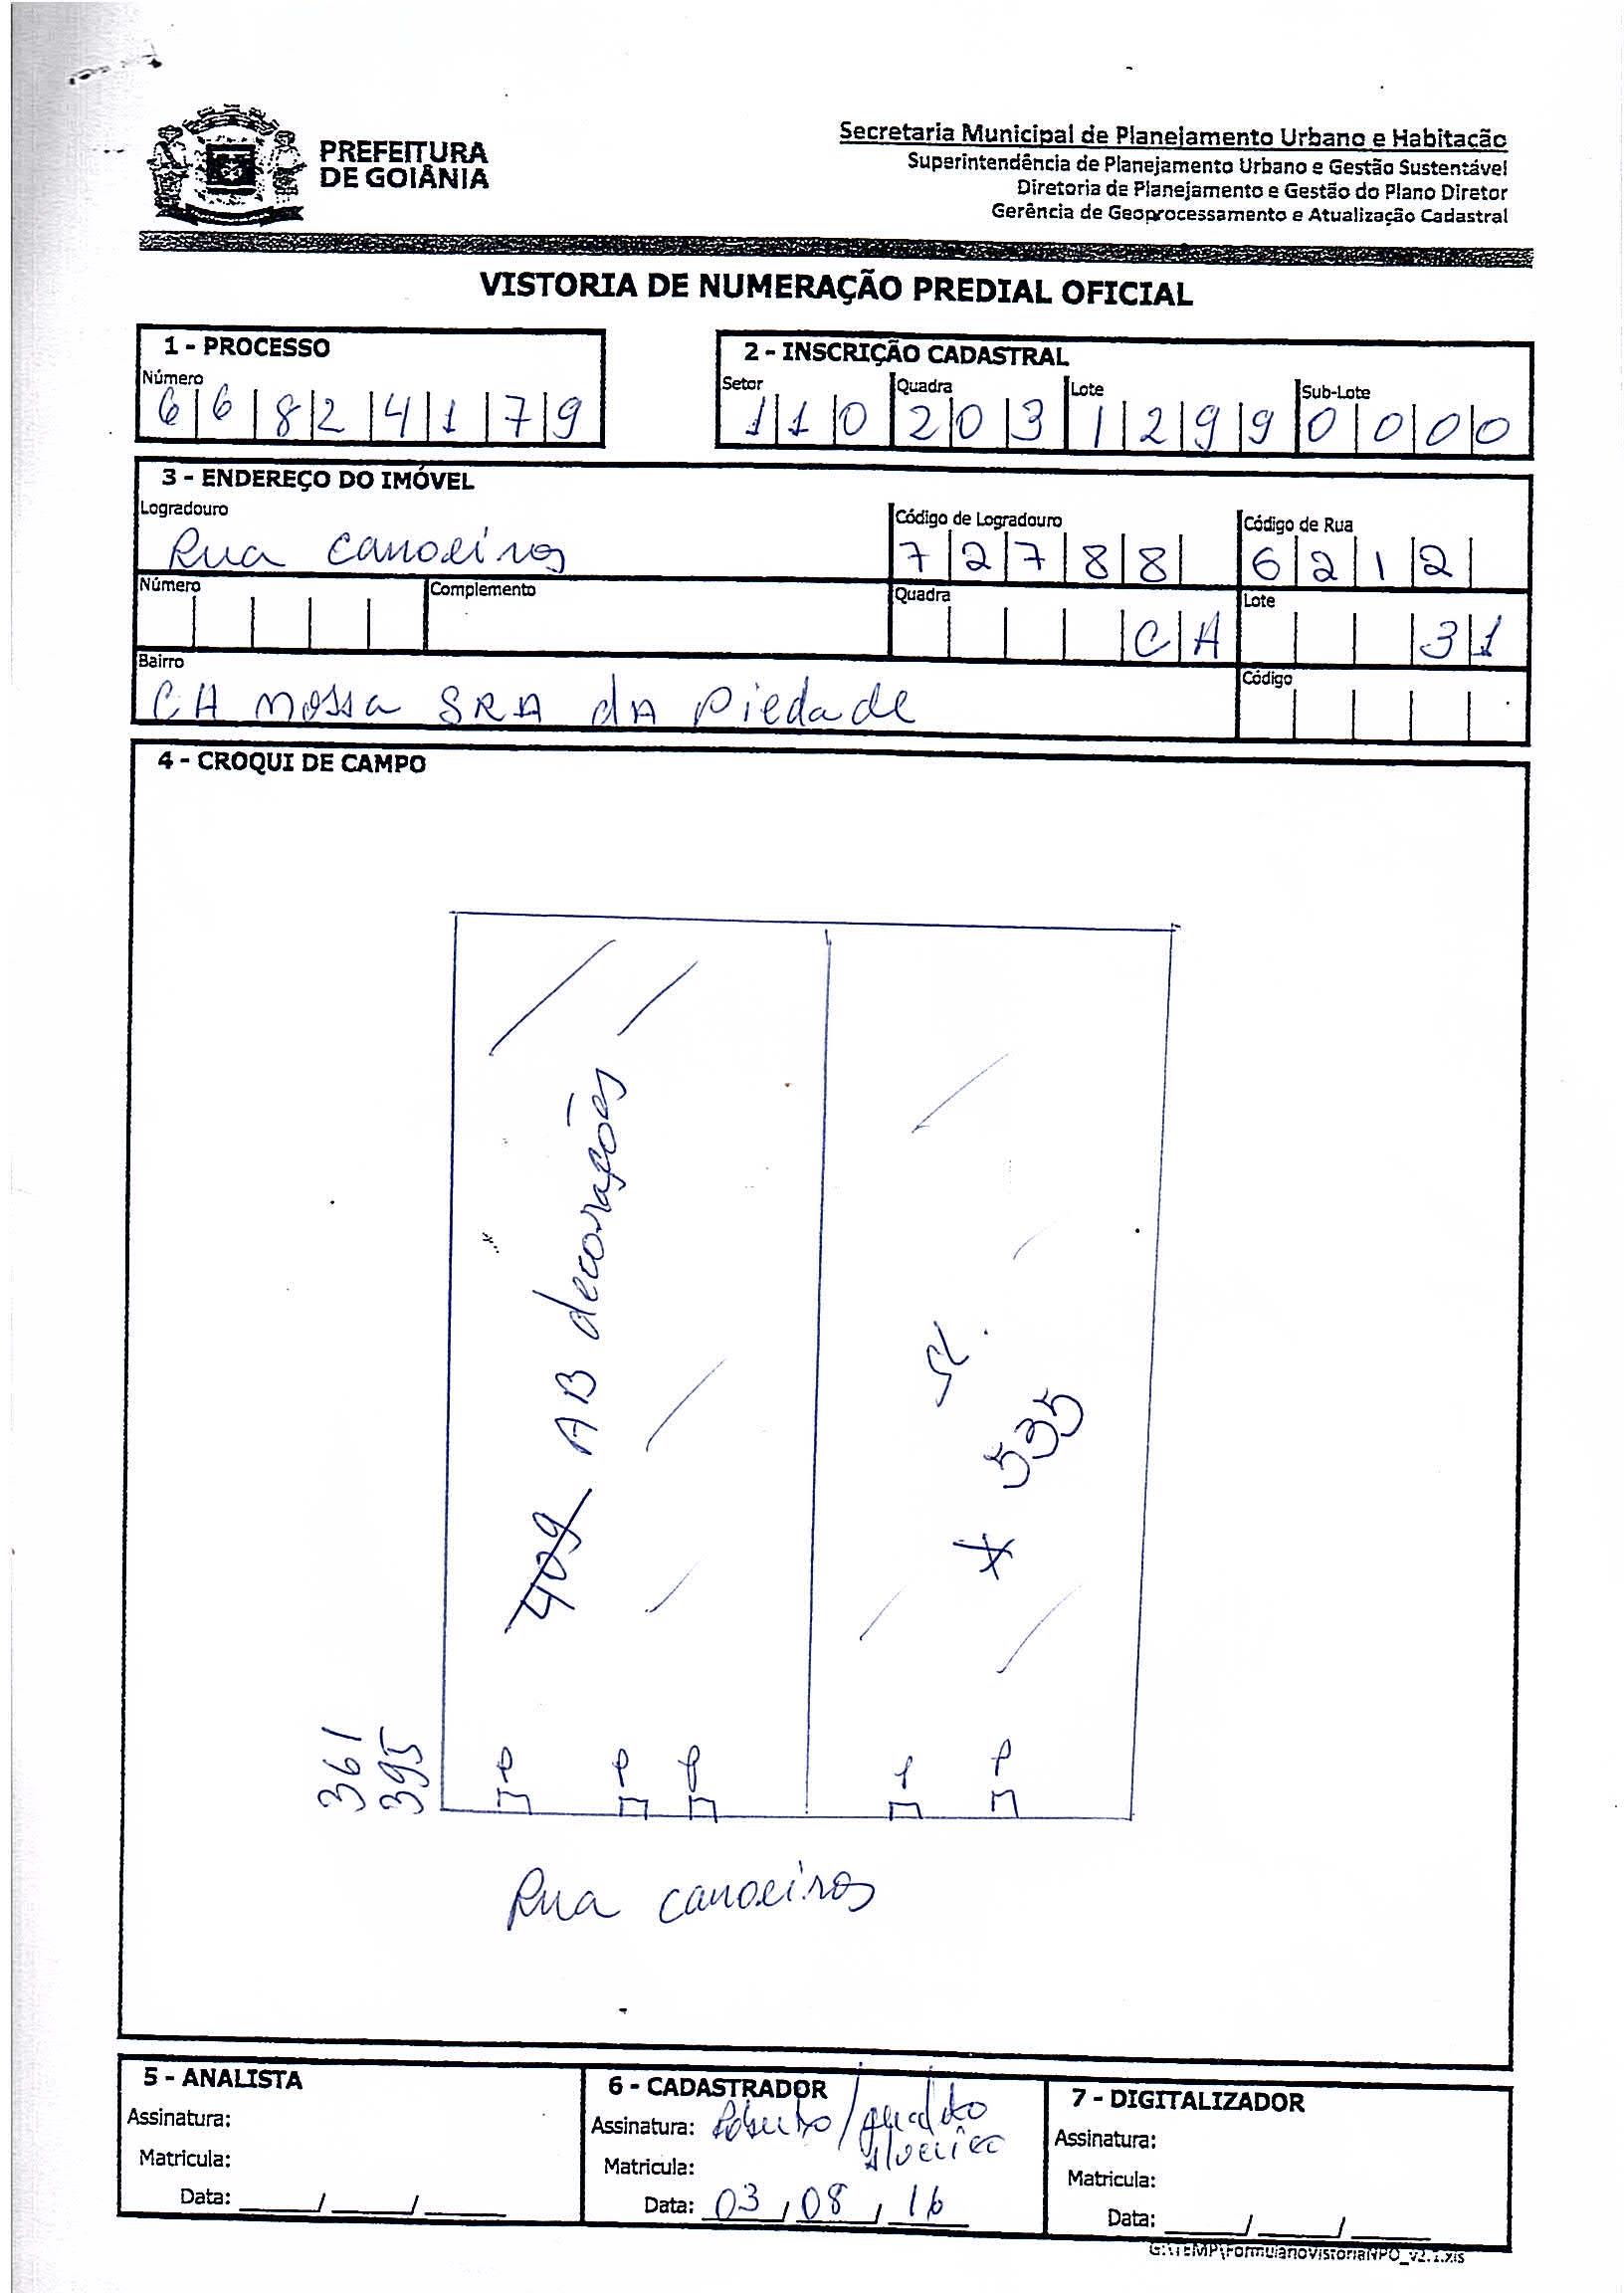 PREFEITURA
DE GOIÂNIA
Secretaria Municipal de Planejamento Urbano e Habitação
Superintendência de Planejamento Urbano e Gestão Sustentável
Diretoria de Planejamento e Gestão do Plano Diretor
Gerência de Geoprocessamento e Atualização Cadastral
VISTORIA DE NUMERAÇÃO PREDIAL OFICIAL
1 - PROCESSO
Número
6 6 8 2 4 1 7 9
2 - INSCRIÇÃO CADASTRAL
Setor Quadra Lote Sub-Lote
1 1 0 2 0 3 1 2 9 9 0 0 0 0
3 - ENDEREÇO DO IMÓVEL
Logradouro Código de Logradouro Código de Rua
Rua canoeiros 7 2 7 8 8 6 2 1 2
Número Complemento Quadra Lote
C A 31
Bairro Código
CH nossa SRA dA Piedade
4 - CROQUI DE CAMPO
409 AB decorações
535
361
395
Rua canoeiros
5 - ANALISTA
Assinatura:
Matricula:
Data: / /
6 - CADASTRADOR
Assinatura: Roberto /
Matricula:
Data: 03 / 08 / 16
7 - DIGITALIZADOR
Assinatura:
Matricula:
Data: / /
G:\TEMP\FormularioVistoriaNPO_v2.1.xls